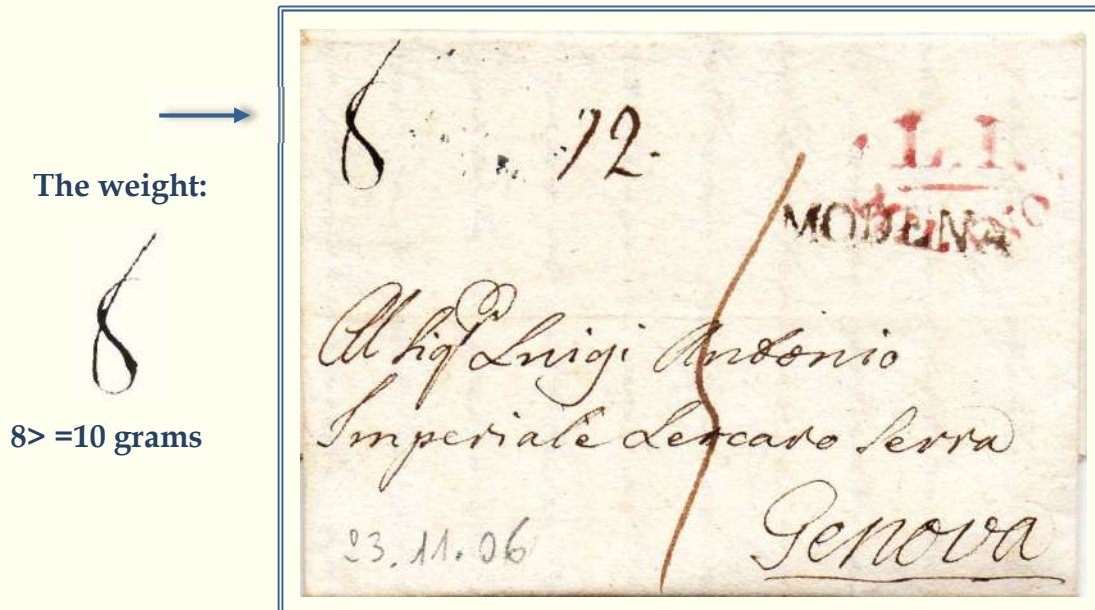 The weight:
8
8> =10 grams
8 12.
L. I.
MODENA
Al Sig.r Luigi Antonio
Imperiale Lercaro Serra
Genova
23.11.06